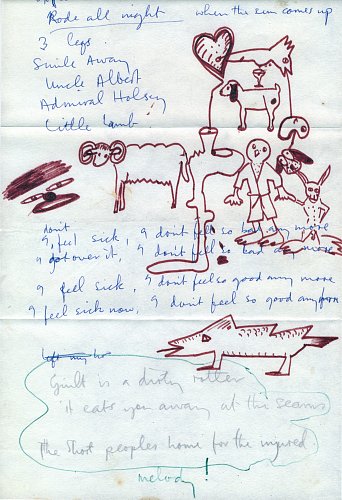 Rode all night when the sun comes up
3 legs.
Smile Away
Uncle Albert
Admiral Halsey
Little Lamb
don't
I feel sick, I don't feel so bad any more
I got over it, I don't feel so bad any more
I feel sick, I don't feel so good any more
I feel sick now, I don't feel so good any more
Guilt is a dirty rotter
it eats you away at the seams
The short peoples home for the injured
melody!